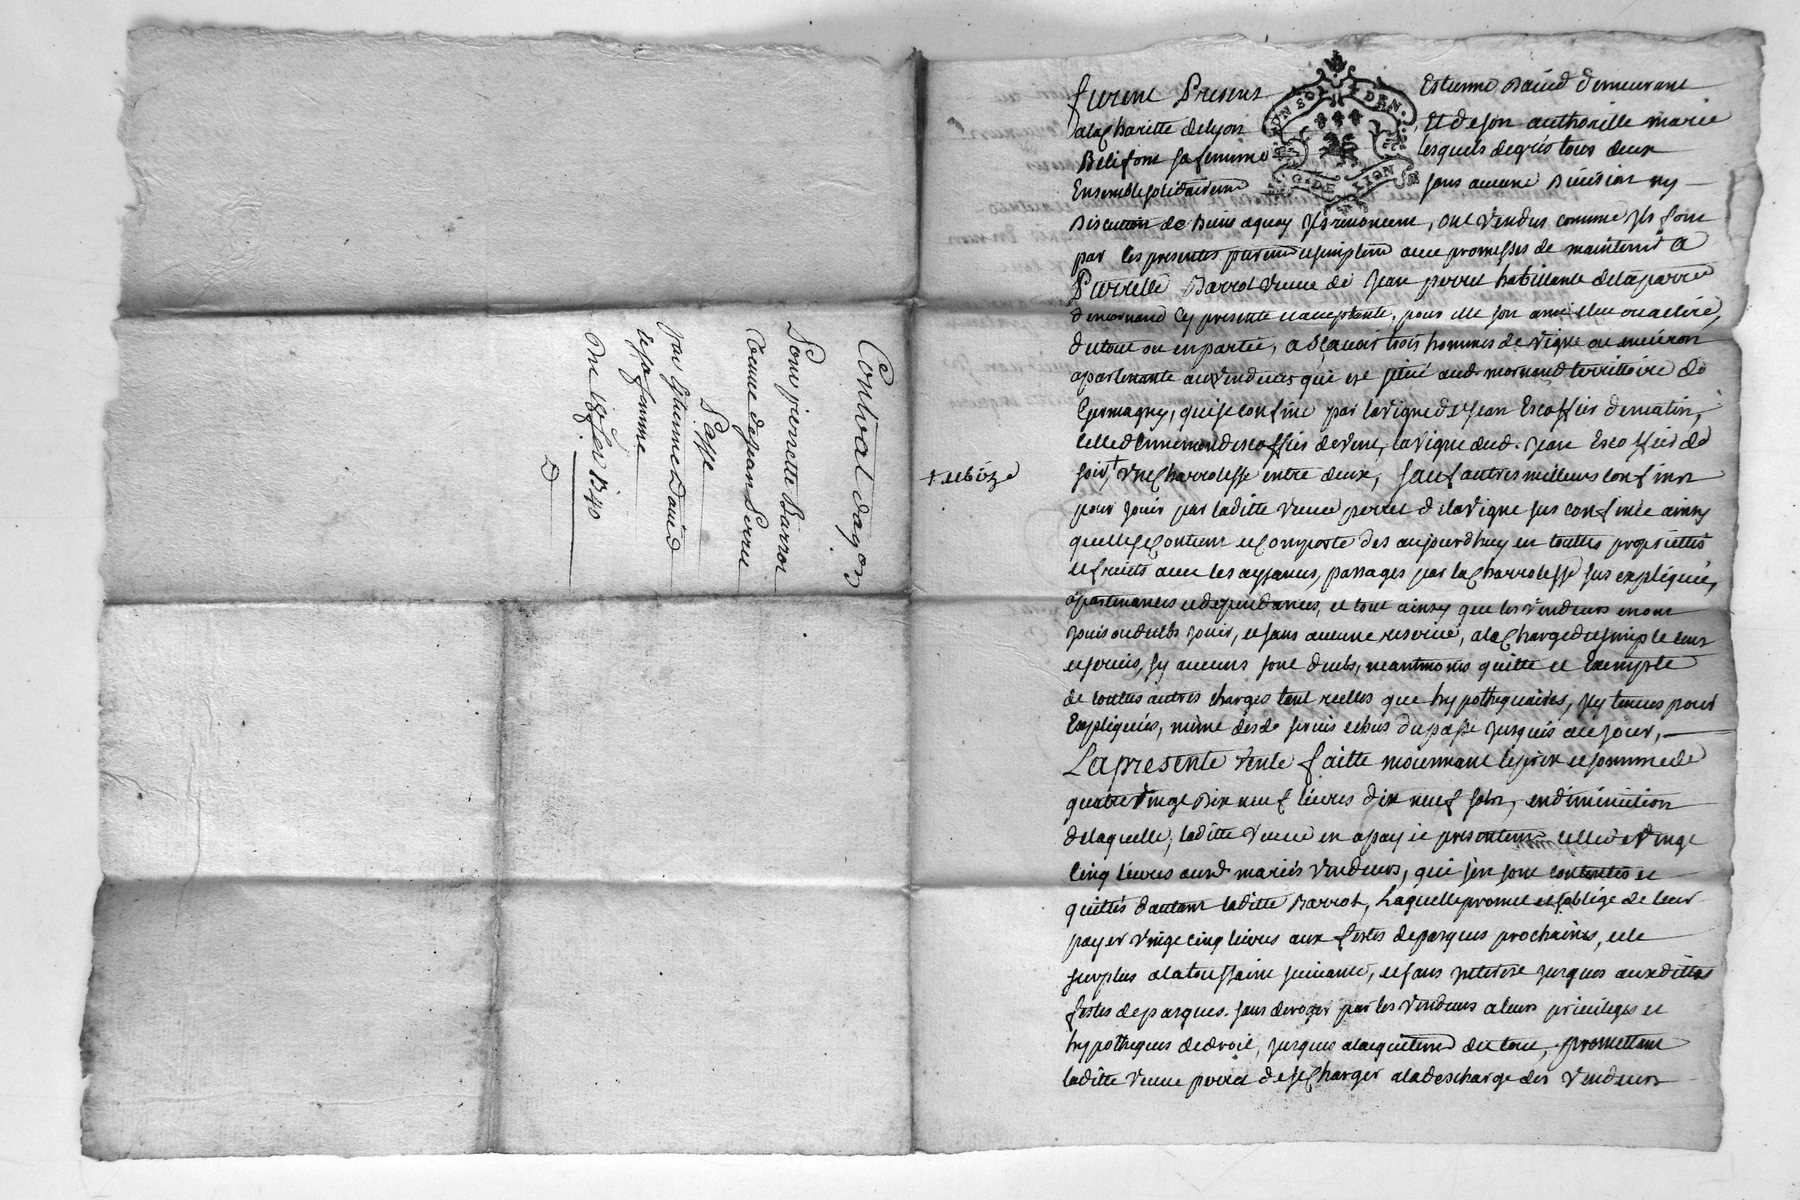 Contrat daq͠on
Pour pierrette Barrot
veuue de jean Perret
Passé
par Estienne Dauid
et sa femme
Du 18 fer 1740
D
+ et bize
furent Presens Estienne Dauid demeurant
a la Charitte de lyon Et de son authoritté marie
sa femme lesquels de gré tous deux
Ensemble solidairemt sans aucune Diuision ny
Discution de biens a quoy Ils renoncent, ont vendus comme Ils font
par les presentes purement et simplemt auec promesses de maintenir A
Pierrette Barrot veuue de Jean perret habittante de la parroisse
de mornand Cy presente et acceptante, pour elle son amie eleu ou a elire,
du tout ou en partie, a Sçauoir trois hommes de vigne ou enuiron
apartenante aux vendeurs qui est scitué aud. mornand territtoire de
Germagny, qui se confine par la vigne de Jean Escoffier de matin,
celle d'Ennemond escoffier de vent, la vigne dud. Jean Escoffier de
soir + vne Charrotesse entre deux, sauf autres meilleurs confins
pour jouir par laditte veuue perret de la vigne sus confinée ainsy
quelle se Contient et Comporte des aujourdhuy en touttes proprietés
et fruits auec les aysances, passages par la Charrotesse sus expliquée,
apartenances et dependances, et tout ainsy que les vendeurs en ont
jouis ou deubs jouir, et sans aucune reserue, a la Charge du simple cens
et seruis, sy aucuns sont deubs, neantmoins quitte et Exempte
de touttes autres charges tant reelles que hypothequaires, jcy tenues pour
Expliquées, même desd. seruis echus du passé jusques a ce jour,
La presente vente faitte moiennant le prix et somme de
quatre vingt Dix neuf liures dix neuf sols, en diminution
de laquelle, laditte veuue en a payé presentemt celle de vingt
cinq liures auxd. mariés vendeurs, qui s'en sont contentés et
quittés d'autant laditte Barrot, Laquelle promet et s'oblige de leur
payer vingt cinq liures aux festes de pasques prochaines, et le
surplus a la toussaint suiuante, et sans interest jusques auxdittes
festes de pasques. sans deroger par les vendeurs a leurs priuileges et
hypotheques de droit, jusques a l'aquittemt du tout, promettant
laditte veuue perret de se Charger a la descharge des vendeurs